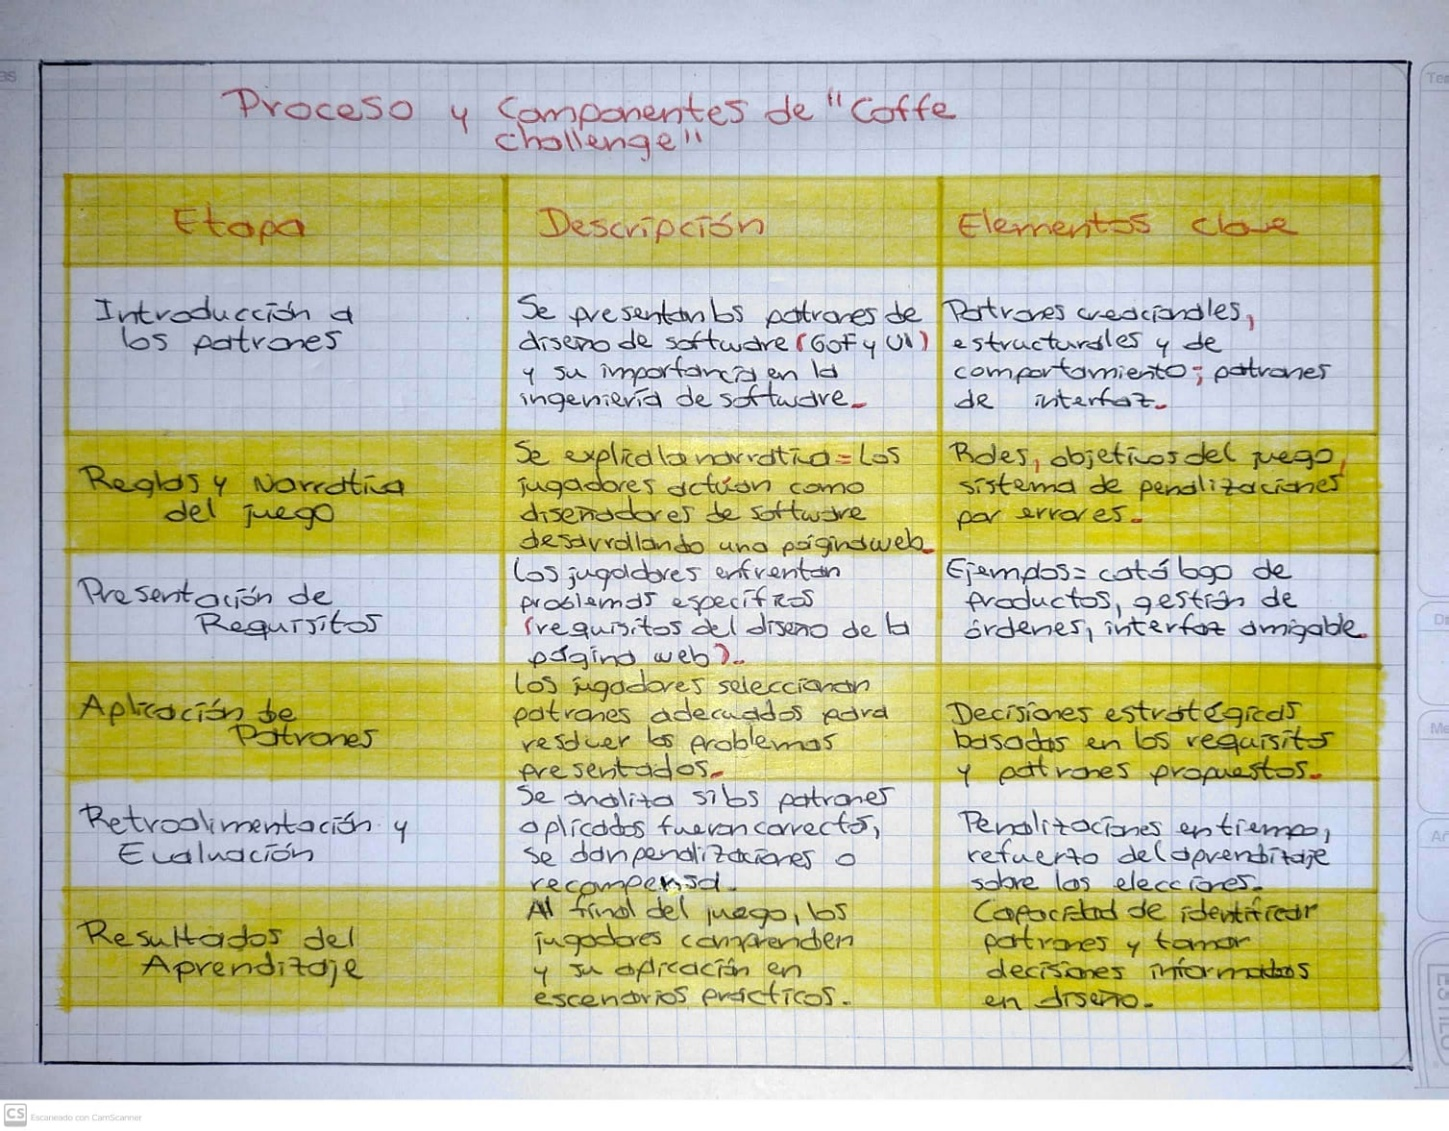 Proceso y Componentes de "Coffe
challenge"
Etapa
Descripción
Elementos clave
Introducción a
los patrones
Se presentan los patrones de
diseño de software (GOF y UI)
y su importancia en la
ingeniería de software.
Patrones creacionales,
estructurales y de
comportamiento; patrones
de interfaz.
Reglas y Narrativa
del juego
Se explica la narrativa= Los
jugadores actúan como
diseñadores de software
desarrollando una página web.
Roles, objetivos del juego,
sistema de penalizaciones
por errores.
Presentación de
Requisitos
Los jugadores enfrentan
problemas específicos
(requisitos del diseño de la
página web).
Ejemplos= catálogo de
productos, gestión de
órdenes, interfaz amigable.
Aplicación de
Patrones
Los jugadores seleccionan
patrones adecuados para
resolver los problemas
presentados.
Decisiones estratégicas
basadas en los requisitos
y patrones propuestos.
Retroalimentación y
Evaluación
Se analiza si los patrones
aplicados fueron correctos,
se dan penalizaciones o
recompensa.
Penalizaciones en tiempo,
refuerzo del aprendizaje
sobre las elecciones.
Resultados del
Aprendizaje
Al final del juego, los
jugadores comprenden
y su aplicación en
escenarios prácticos.
Capacidad de identificar
patrones y tomar
decisiones informadas
en diseño.
CS Escaneado con CamScanner